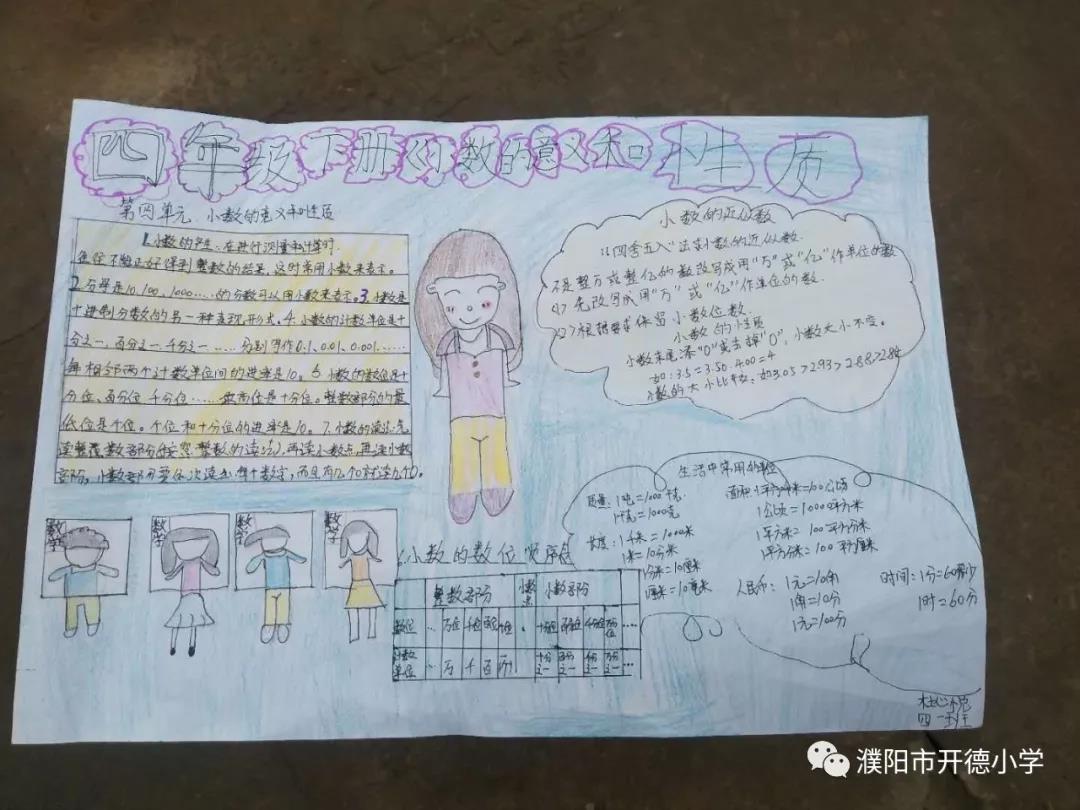 四年级下册《小数的意义和性质
第四单元 小数的意义和性质
1.小数的产生:在进行测量和计算时.
往往不能正好得到整数的结果,这时常用小数来表示。
2.分母是10、100、1000……的分数可以用小数来表示。3.小数是
十进制分数的另一种表现形式。4.小数的计数单位是十
分之一、百分之一、千分之一……分别写作0.1、0.01、0.001……
每相邻两个计数单位间的进率是10。6.小数的数位是十
分位、百分位、千分位……最高位是十分位。整数部分的最
低位是个位。个位和十分位的进率是10。7.小数的读法:先
读整数部分(按照整数的读法),再读小数点,再读小数
部分。小数部分要依次读出每个数字,而且有几个0就读几个0。
小数的近似数
"四舍五入"法求小数的近似数.
不是整万或整亿的数改写成用"万"或"亿"作单位的数
<1>先改写成用"万"或"亿"作单位的数.
<2>根据要求保留小数位数.
小数的性质
小数末尾添"0"或去掉"0",小数大小不变。
如:3.5=3.50 4.00=4
小数的大小比较:如3.05>2.93>2.88>2.84
数学
数学
数学
数学
小数的数位顺序
整数部分 小数点 小数部分
数位 … 万位 千位 百位 十位 . 十分位 百分位 千分位 万分位 ……
计数单位 … 万 千 百 十 十分之一 百分之一 千分之一 万分之一 …
生活中常用的单位
质量:1吨=1000千克
1千克=1000克
长度:1千米=1000米
1米=10分米
1分米=10厘米
1厘米=10毫米
面积:1平方千米=100公顷
1公顷=10000平方米
1平方米=100平方分米
1平方分米=100平方厘米
人民币:1元=10角
1角=10分
1元=100分
时间:1分=60秒
1时=60分
四一班
濮阳市开德小学